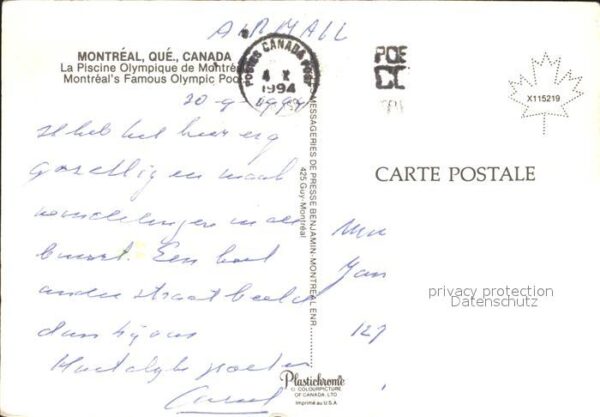 AIR MAIL
MONTRÉAL, QUÉ., CANADA
La Piscine Olympique de Montré
Montréal's Famous Olympic Poo
POSTES CANADA POST
4 X
1994
X115219
CARTE POSTALE
MESSAGERIES DE PRESSE BENJAMIN-MONTREAL ENR.
425 Guy-Montréal
20-9-1994
Ik heb het hier erg
gezellig en maak
wandelingen in de
buurt. Een heel
ander straatbeeld
dan bij ons
Hartelijke groeten
Jan
127
privacy protection
Datenschutz
Plastichrome
© COLOURPICTURE
OF CANADA, LTD
Imprimé au U.S.A